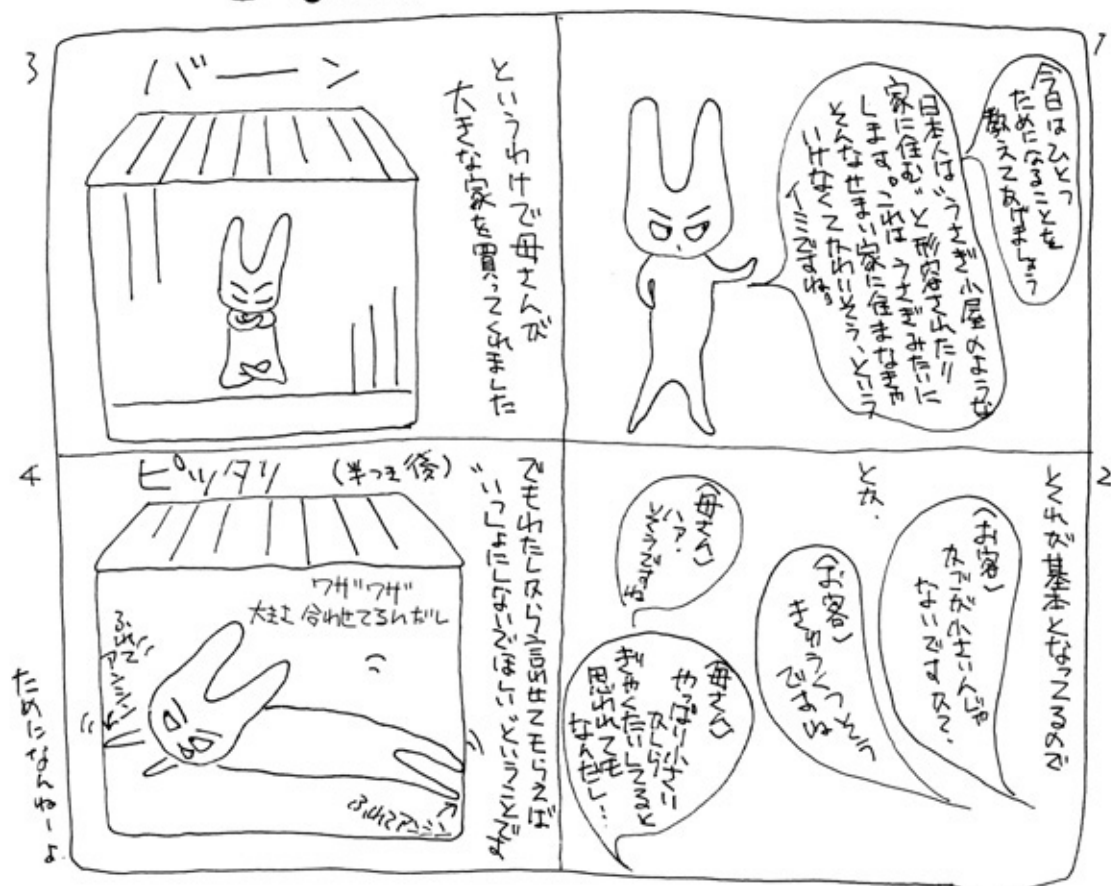 1
今日はひとつ
ためになることを
教えてあげましょう
日本人は“うさぎ小屋のような
家に住む”と形容されたり
します。これはうさぎみたいに
そんなせまい家に住まなきゃ
いけなくてかわいそう、という
イミですね。
2
それが基本となってるので
(お客)
カゴが小さいんじゃ
ないですカ?
(お客)
きゅうくつそう
ですね
とカ.
(母さん)
ハァ.
そうですね
(母さん)
やっぱり小さい
カしら
ぎゃくたいしてると
思われても
なんだし…
3
というわけで母さんが
大きな家を買ってくれました
バーン
4
でもわたしから言わせてもらえば
“いっしょにしないでほしい”ということです
(半つき後)
ピッタリ
ワザワザ
大きさ合わせてるんだし
ふれてアンシン
ふれてアンシン
ためになんねーよ